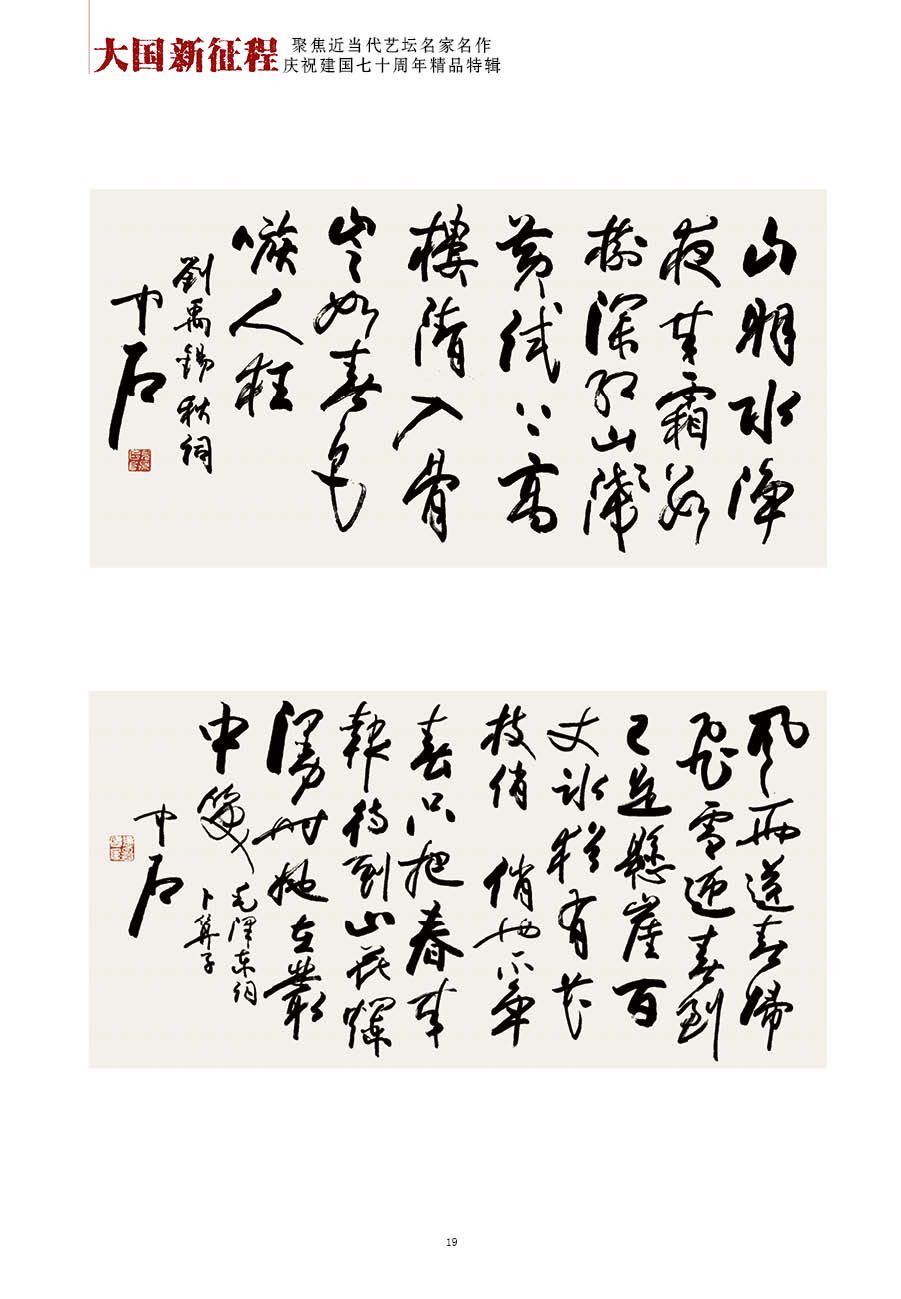 大国新征程
聚焦近当代艺坛名家名作
庆祝建国七十周年精品特辑
山明水净
夜来霜数
樹深红出淺
黄试上高
樓清入骨
岂如春色
嗾人狂
劉禹錫秋词
中石
風雨送春歸
飛雪迎春到
已是懸崖百
丈冰猶有花
枝俏 俏也不争
春只把春来
報待到山花爛
漫时她在叢
中笑
毛澤东词
卜算子
中石
19